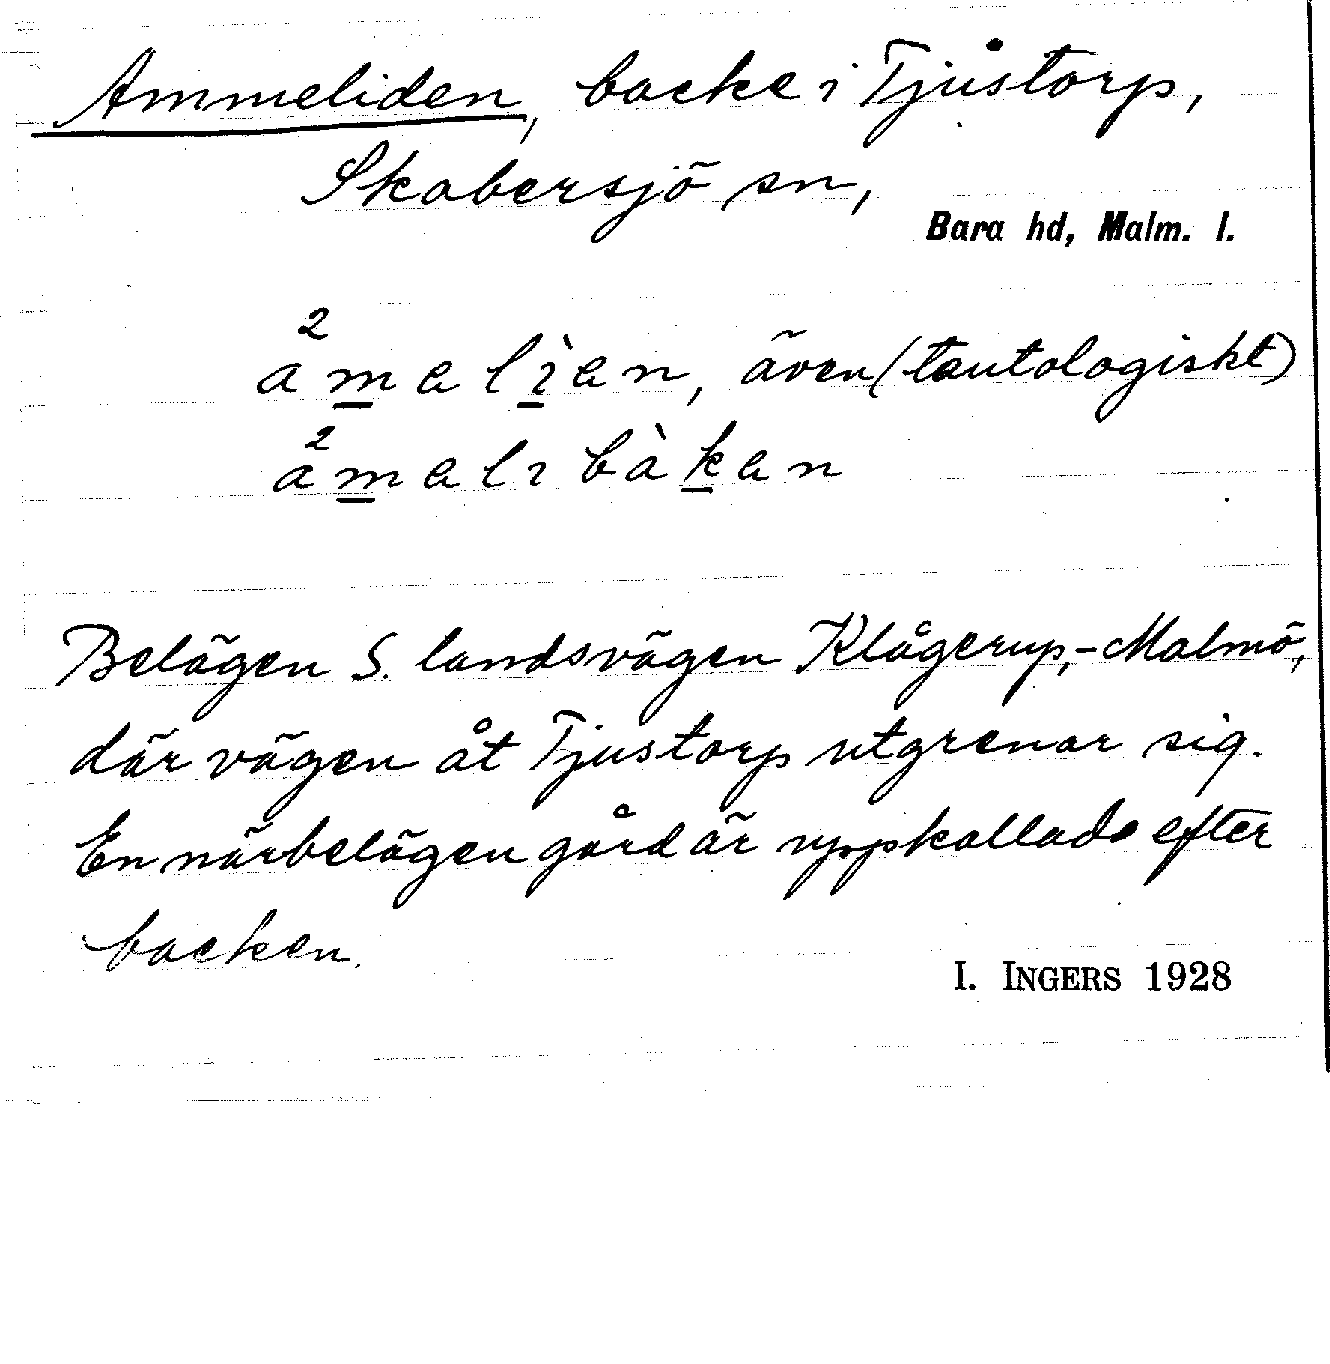 Ammeliden, backe i Tjustorp,
Skabersjö sn,
Bara hd, Malm. l.
a²melìen, även (tautologiskt)
a²melıbàken
Belägen S. landsvägen Klågerup,-Malmö,
där vägen åt Tjustorp utgrenar sig.
En närbelägen gård är uppkallade efter
backen.
I. INGERS 1928